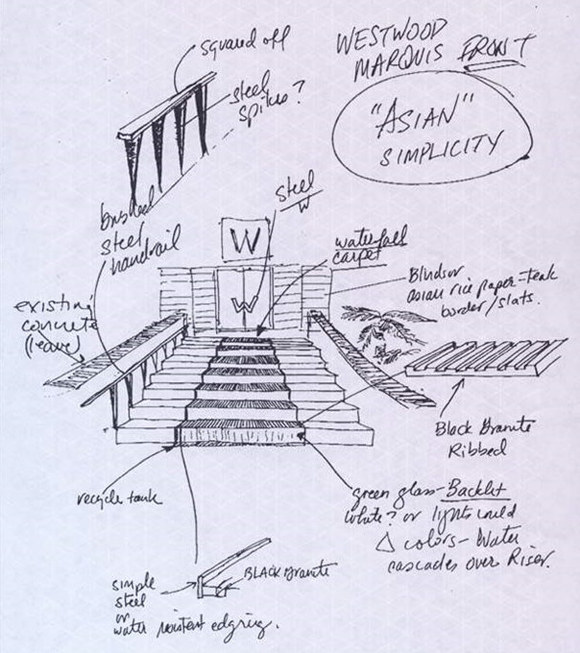 squared off
WESTWOOD
MARQUIS FRONT
steel
spikes?
"ASIAN"
SIMPLICITY
brushed
steel
handrail
steel
W
W
W
waterfall
carpet
existing
concrete
(leave)
Blinds or
asian rice paper-teak
border/slats.
Black Granite
Ribbed
recycle tank
green glass-Backlit
white? or lights could
Δ colors-Water
cascades over Riser.
simple
steel
or
water resistent edging.
BLACK Granite